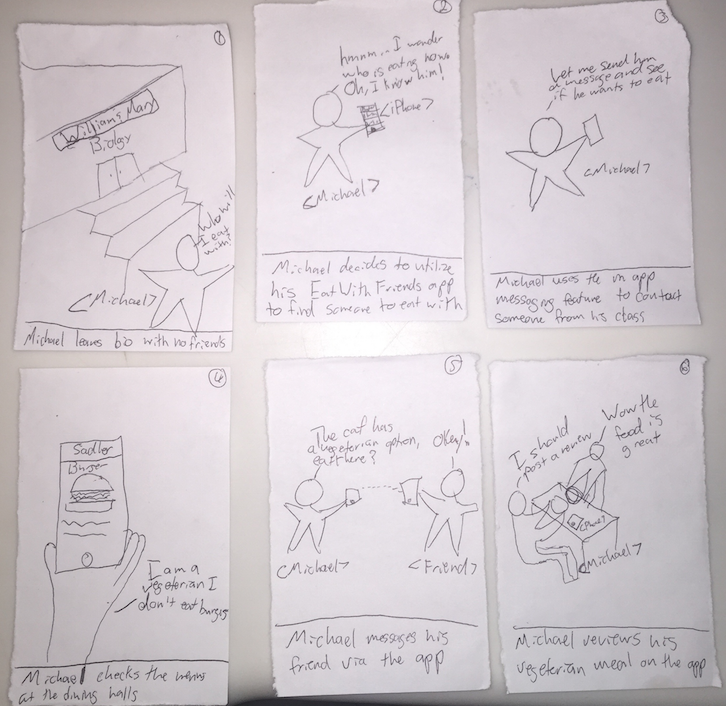 1
William & Mary
Biology
Who will
I eat
with?
<Michael>
Michael leaves bio with no friends
2
hmmm... I wonder
who is eating now.
Oh, I know him!
<iPhone>
<Michael>
Michael decides to utilize
his EatWithFriends app
to find someone to eat with
3
Let me send him
a message and see
if he wants to eat
<Michael>
Michael uses the in app
messaging feature to contact
someone from his class
4
Sadler
Burger
I am a
vegeterian I
don't eat burgers
Michael checks the menus
at the dining halls
5
The caf has
a vegeterian option,
eat there?
Okay!
<Michael>
<Friend>
Michael messages his
friend via the app
6
I should
post a review
Wow the
food is
great
<iPhone>
<Michael>
Michael reviews his
vegeterian meal on the app